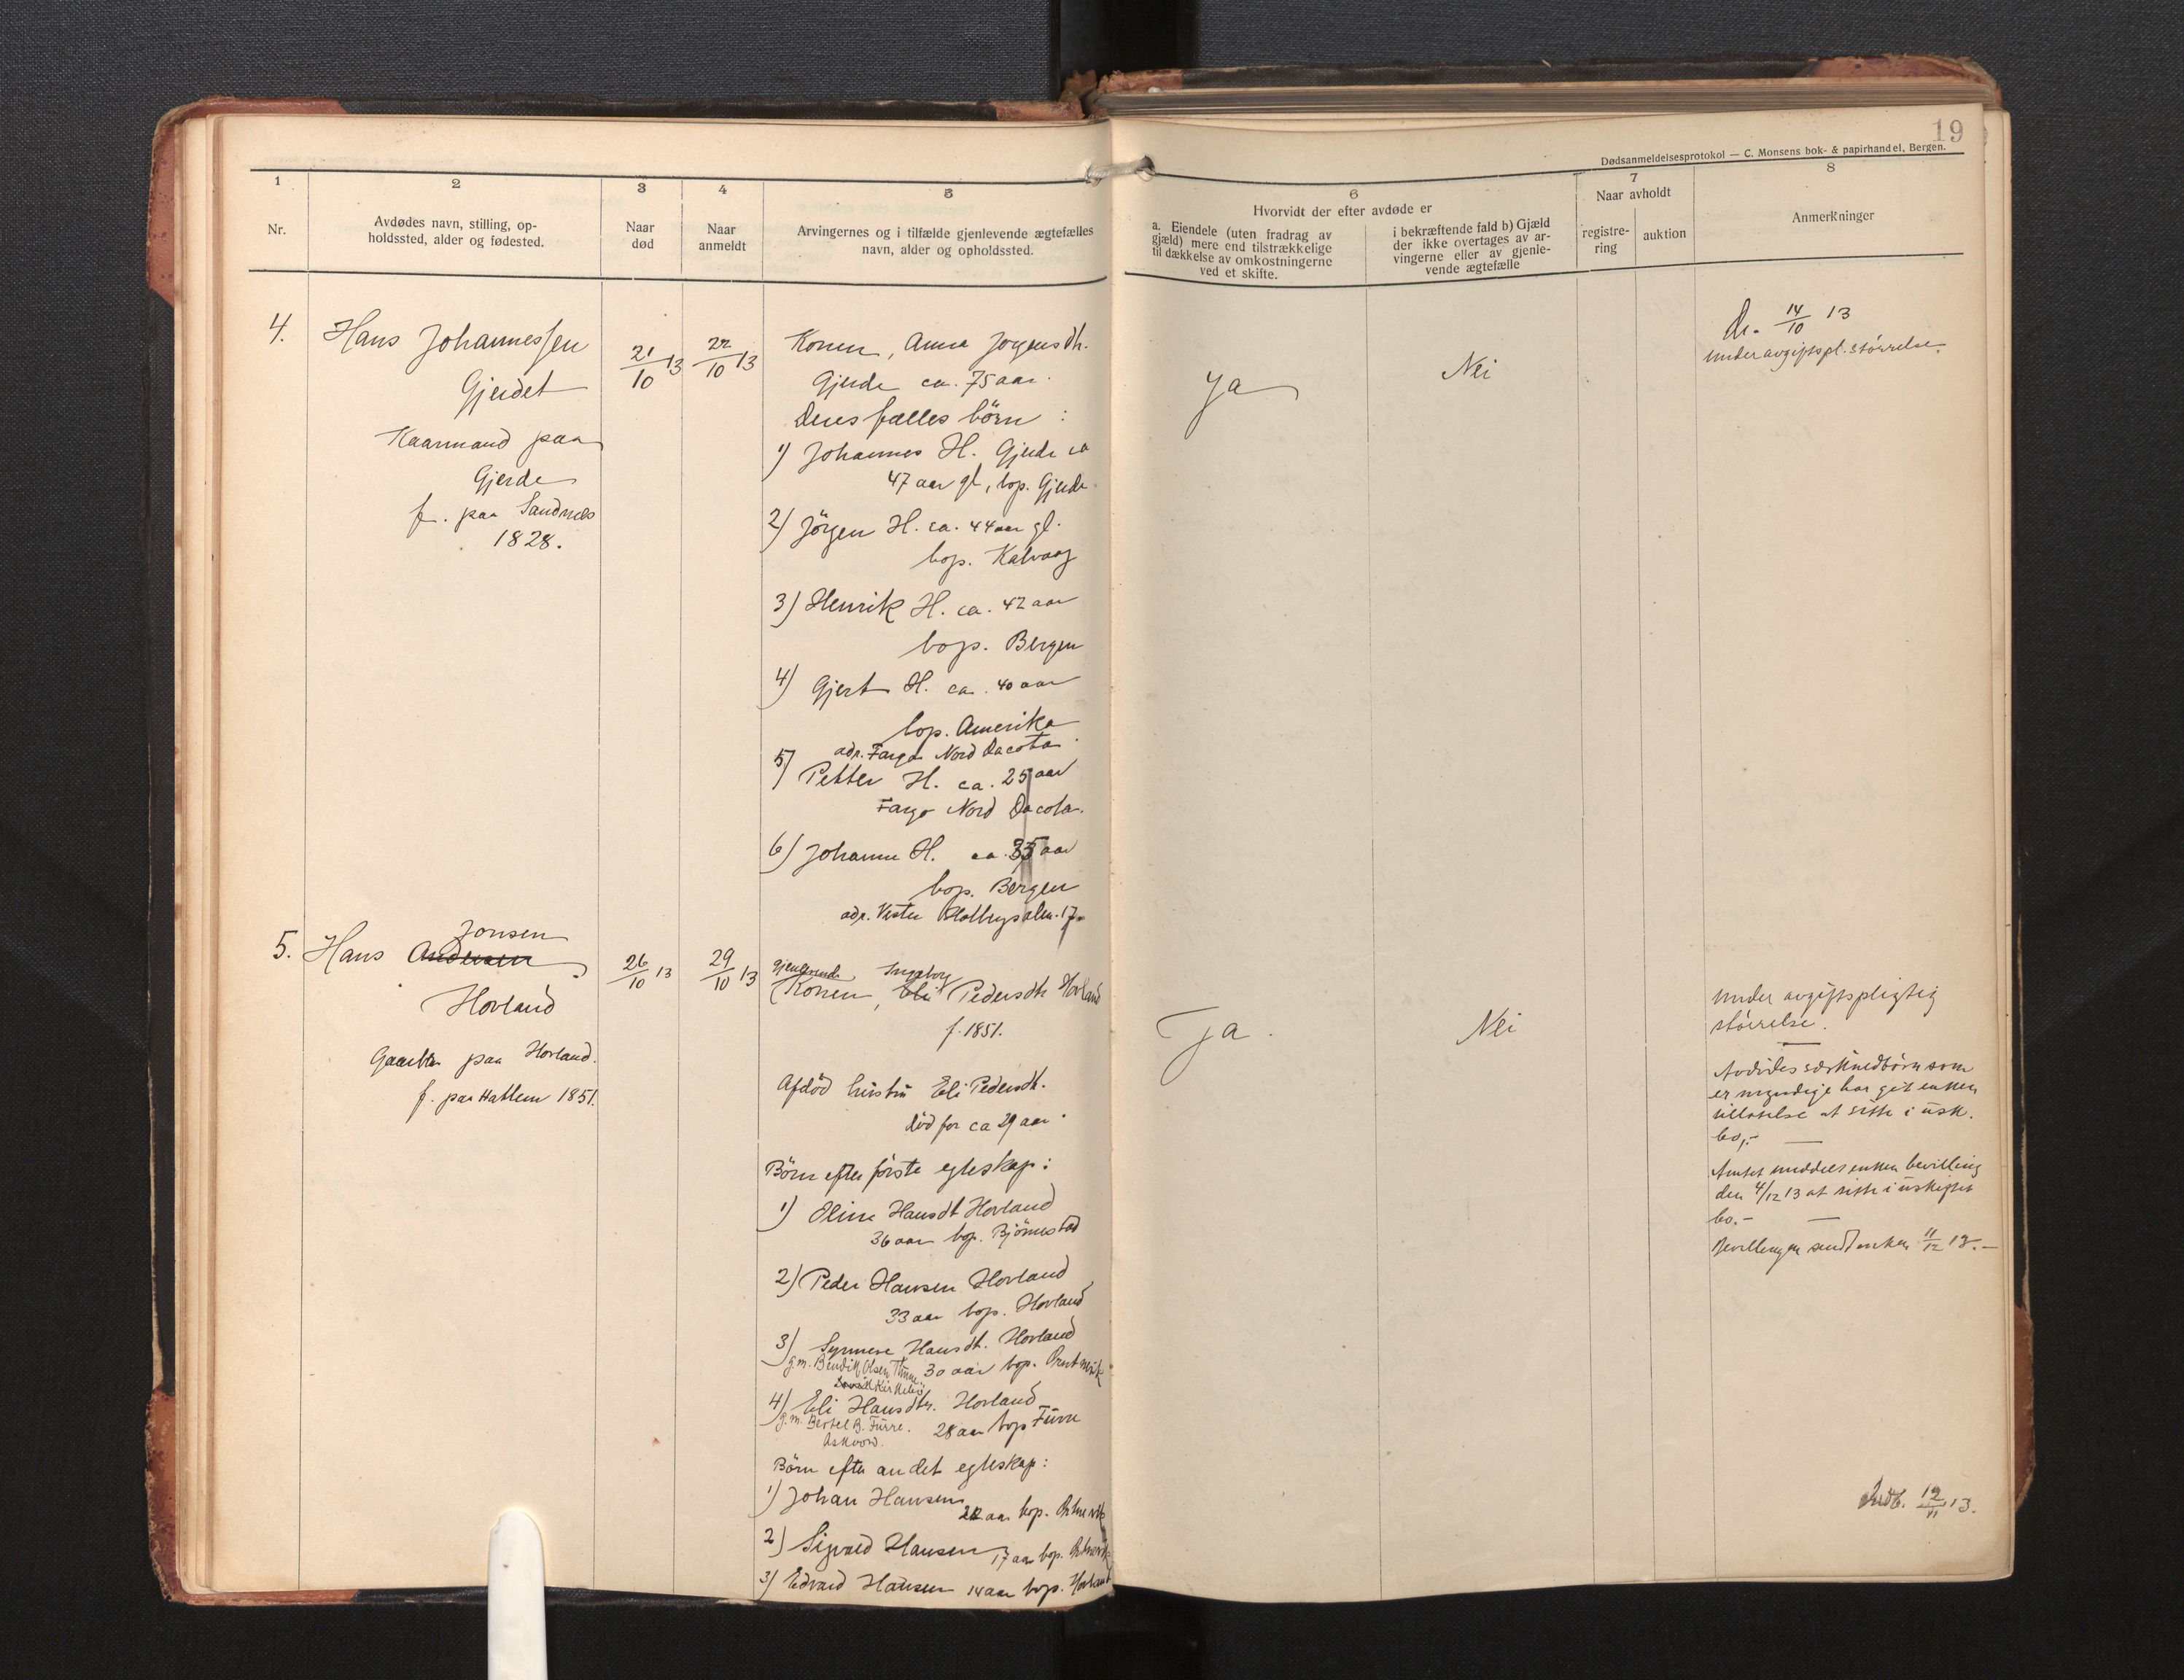 19
Dødsanmeldelsesprotokol — C. Monsens bok- & papirhandel, Bergen.
1
Nr.
2
Avdødes navn, stilling, op-
holdssted, alder og fødested.
3
Naar
død
4
Naar
anmeldt
5
Arvingernes og i tilfælde gjenlevende ægtefælles
navn, alder og opholdssted.
6
Hvorvidt der efter avdøde er
a. Eiendele (uten fradrag av
gjæld) mere end tilstrækkelige
til dækkelse av omkostningerne
ved et skifte.
i bekræftende fald b) Gjæld
der ikke overtages av ar-
vingerne eller av gjenle-
vende ægtefælle
7
Naar avholdt
registre-
ring
auktion
8
Anmerkninger
4.
Hans Johannessen
Gjerdet
Kaarmand paa
Gjerde
f. paa Sandnes
1828.
21/10 13
22/10 13
Konen, Anna Jørgensdt.
Gjerde ca. 75 aar.
Deres fælles børn :
1) Johannes H. Gjerde ca
47 aar gl, bop. Gjerde
2) Jörgen H. ca. 44 aar gl.
bop. Kalvaag
3) Henrik H. ca. 42 aar
bop. Bergen
4) Gjert H. ca. 40 aar
bop. Amerika
adr. Fargo Nord Dacota
5) Petter H. ca. 25 aar
Fargo Nord Dacota.
6) Johanne H. ca. 35 aar
bop. Bergen
adr. Vestre 17
Ja
Nei
14/10 13
under avgiftspl. størrelse.
5.
Jonsen
Hans Andersen
Hovland
Gaardbr. paa Hovland.
f. paa Hatlem 1851.
26/10 13
29/10 13
Gjenlevende Ingeborg
Konen, Eli Pedersdtr Hovland
f. 1851.
Afdød hustru Eli Pedersdt.
död for ca 29 aar
Börn efter første egteskap :
1) Oline Hansdt Hovland
36 aar bop. Björnestad
2) Peder Hansen Hovland
33 aar bop. Hovland
3) Synneve Hansdt. Hovland
g.m. Bendik Olsen 30 aar bop.
4) Eli Hansdtr. Hovland
g.m. Bertel B. Fürre. 28 aar bop Fürre
Askvoll.
Börn efter andet egteskap :
1) Johan Hansen
aar bop.
2) Sigvald Hansen 17 aar bop.
3) Edvard Hansen 14 aar bop. Hovland
Ja.
Nei
under avgiftspligtig
størrelse.
Avdødes særkuldbørn som
er myndige har git enken
tillatelse at sitte i usk.
bo,-
Amtet meddelt enken bevilling
den 4/12 13 at sitte i uskiftet
bo.-
Bevillingen sendt enken 11/12 13.-
12/11 13.